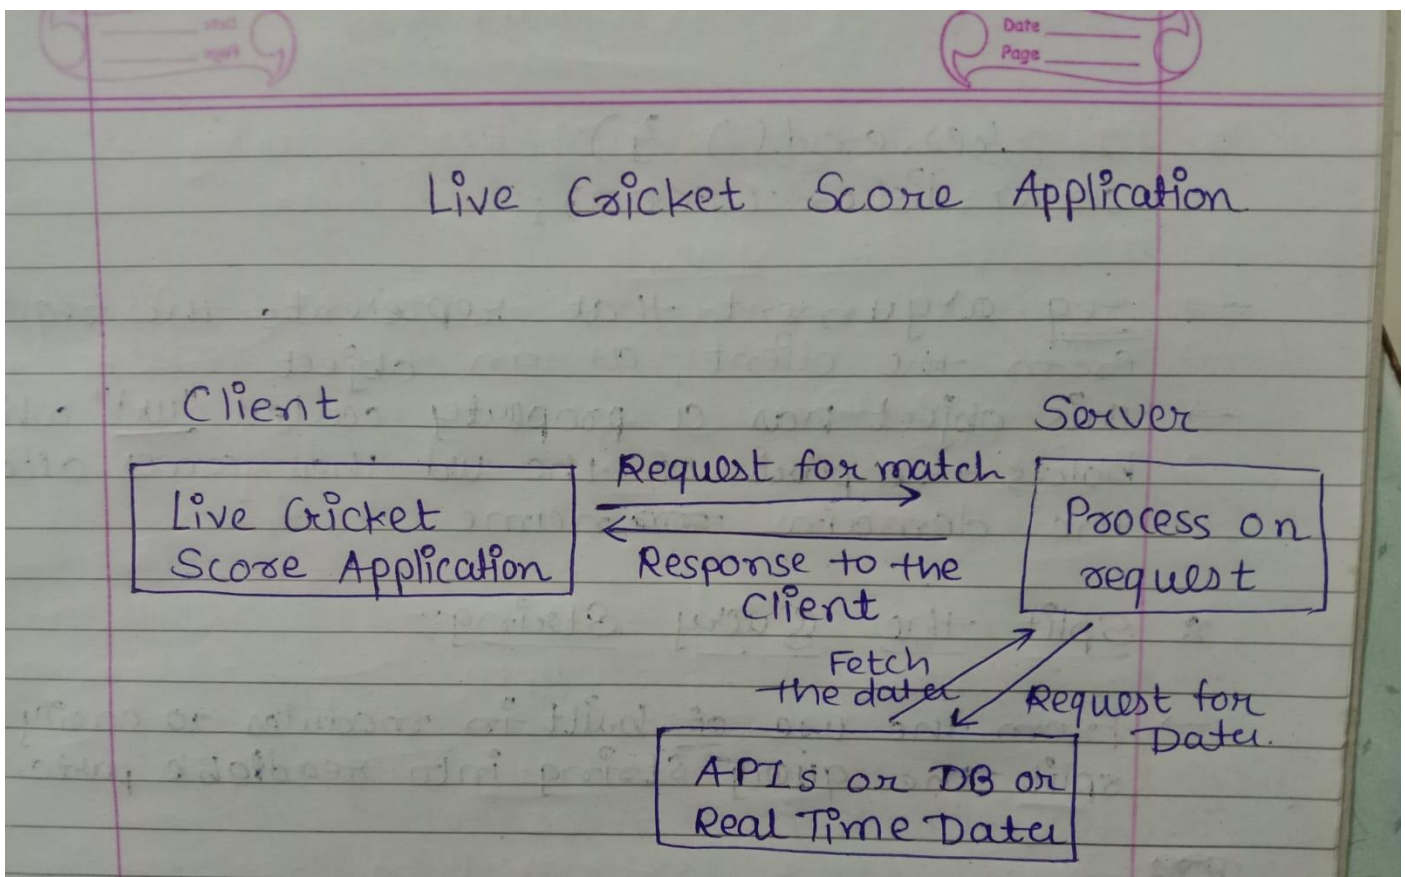 Date
Page
Live Cricket Score Application
Client
Server
Request for match
Live Cricket
Score Application
Response to the
Client
Process on
request
Fetch
the data
Request for
Data.
APIs or DB or
Real Time Data